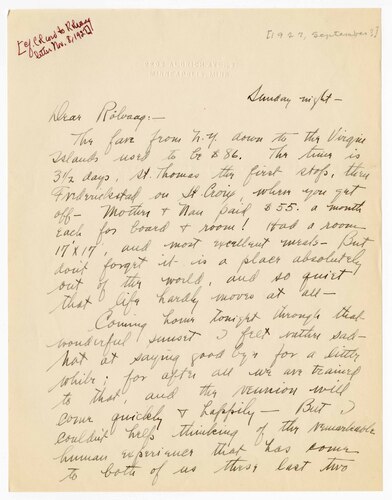 [cf. Colcord to Rolvaag
letter Nov. 8, 1927]
[1927, September?]
MINNEAPOLIS, MINN.
Sunday night —
Dear Rölvaag:—
The fare from N.Y. down to the Virgin
Islands used to be $86. The time is
3½ days, St. Thomas the first stop, then
Fredrickstad on St. Croix, where you get
off — Mother & Nan paid $55. a month
each for board & room! Had a room
17' x 17', and most excellent meals — But
dont forget it is a place absolutely
out of the world, and so quiet
that life hardly moves at all —
Coming home tonight through that
wonderful sunset I felt rather sad —
Not at saying good bye for a little
while; for after all we are trained
to that and the reunion will
come quickly & happily — But I
couldn't help thinking of the remarkable
human experience that has come
to both of us these last two